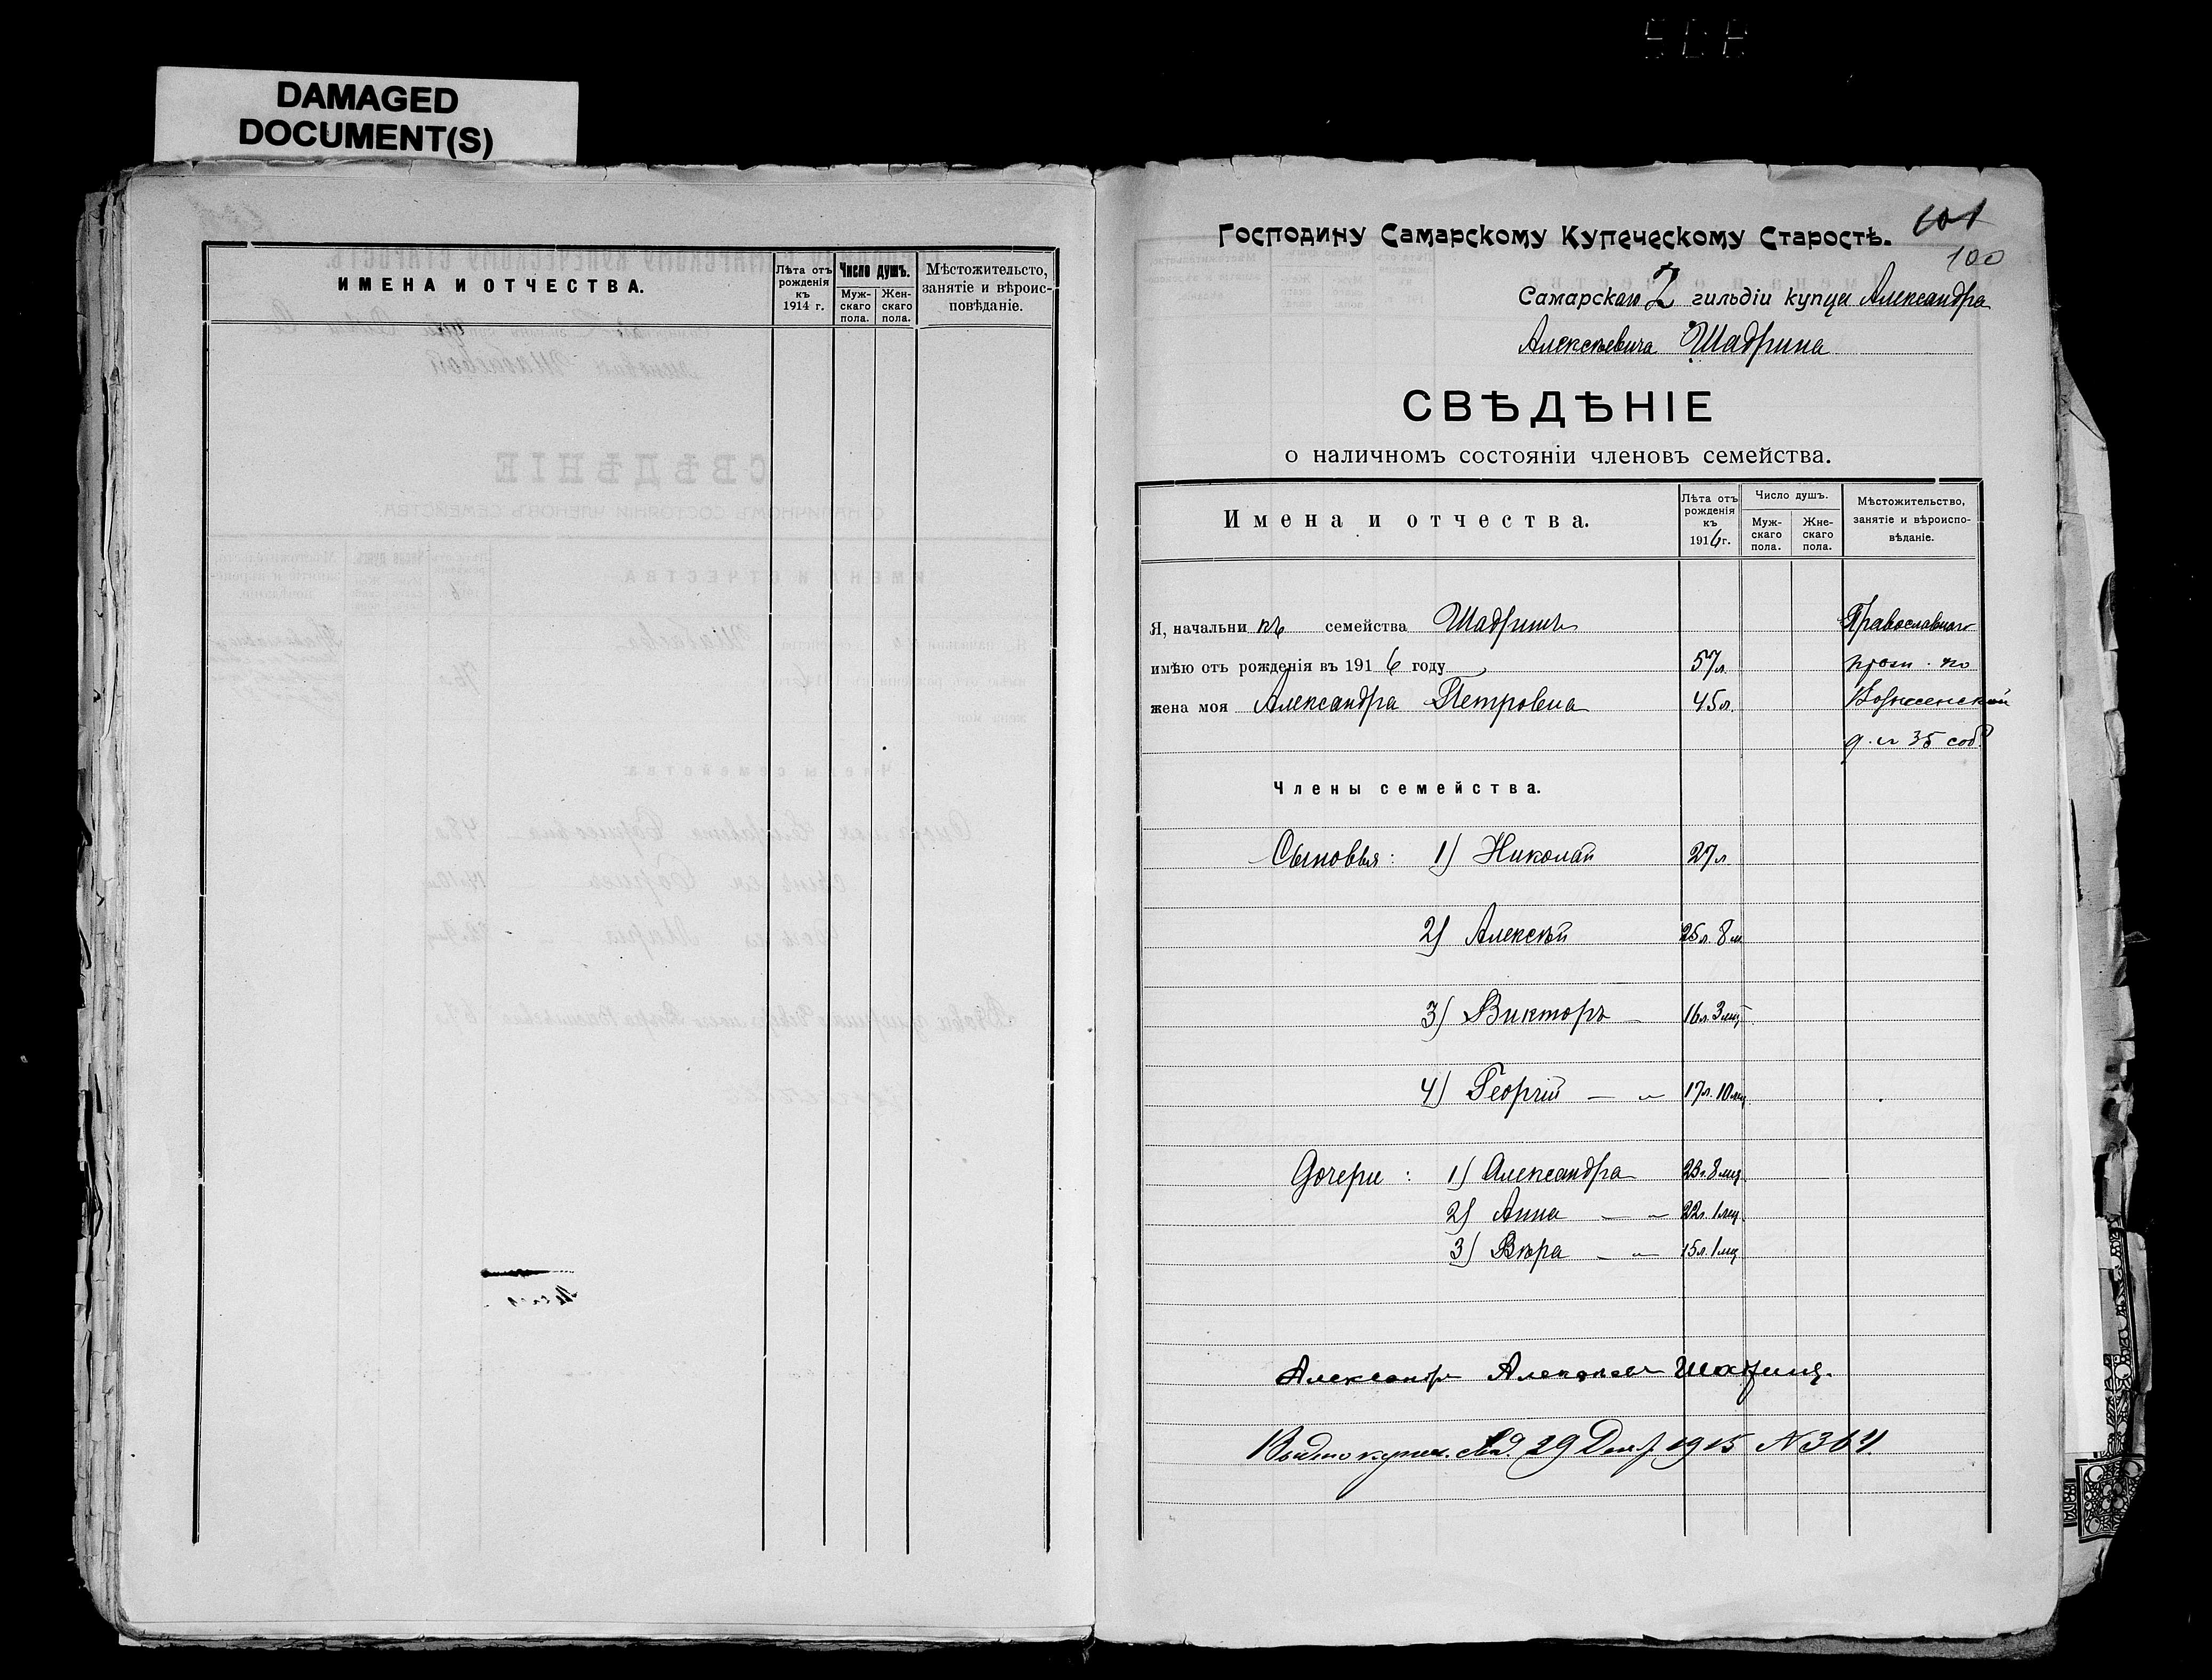 DAMAGED
DOCUMENT(S)
ИМЕНА И ОТЧЕСТВА.
Лѣта отъ
рожденія
къ
1914 г.
Число душъ.
Муж-
скаго
пола.
Жен-
скаго
пола.
Мѣстожительсто,
занятіе и вѣроис-
повѣданіе.
101
100
Господину Самарскому Купеческому Старостѣ.
Самарскаго 2 гильдіи купца Александра
Алексѣевича Шадрина
СВѢДѢНІЕ
о наличномъ состояніи членовъ семейства.
Имена и отчества.
Лѣта отъ
рожденія
къ
1916 г.
Число душъ.
Муж-
скаго
пола.
Жне-
скаго
пола.
Мѣстожительство,
занятіе и вѣроиспо-
вѣданіе.
Я, начальникъ семейства Шадринъ Православнаго
имѣю отъ рожденія въ 1916 году 57 л. прож. по
жена моя Александра Петровна 45 л. Вознесенской
д. № 35 соб.
Члены семейства.
Сыновья: 1) Николай 27 л
2) Алексѣй 25 л. 8 м
3) Викторъ — 16 л. 3 мц
4) Георгій — „ 17 л. 10 мц
Дочери: 1) Александра 23 л. 8 мц
2) Анна — „ 22 л. 1 мц.
3) Вѣра — „ 15 л. 1 мц
Александръ Алексѣев Шадринъ.
купеч. свид. 29 Дек. 1915 № 364.